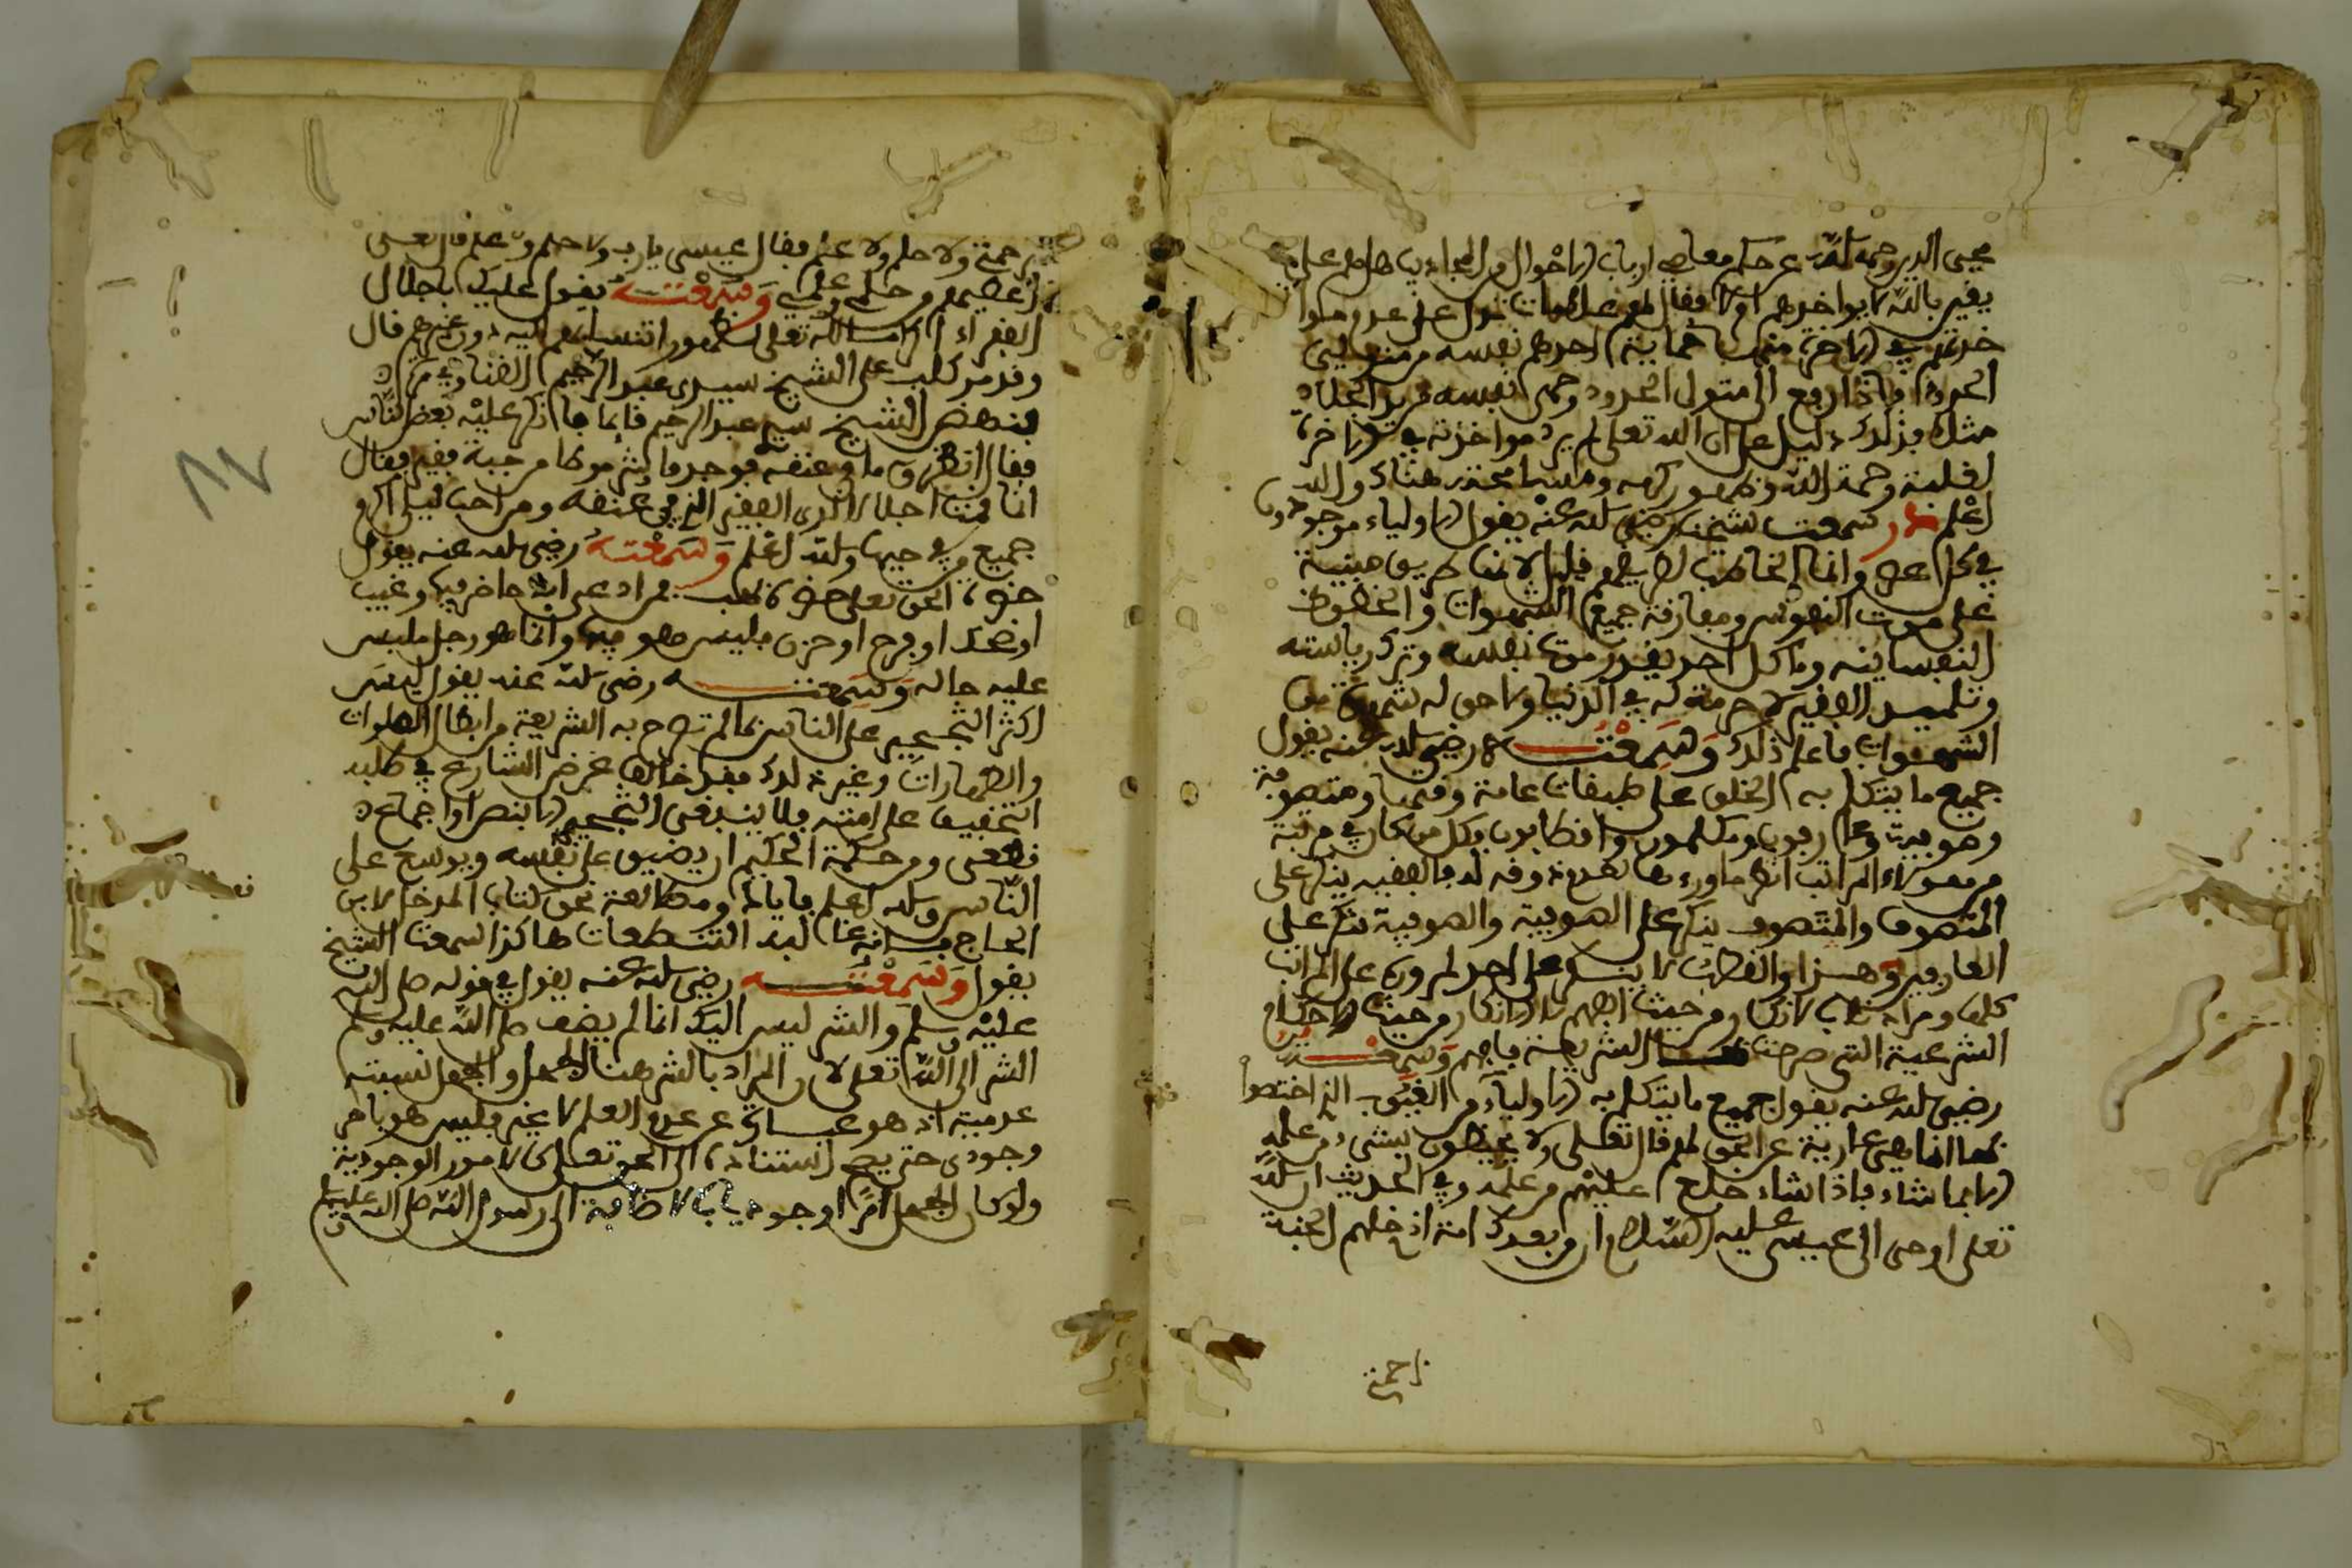 محيى الدين رحمه الله عن حكم معاصي ارباب الاحوال من المجاذيب هل هم على
يقين بالله لا يواخذهم او لا فقال لهم علامات تدل على عدم
خذتهم في الاخرة منها حماية احدهم نفسه من متولين
الحدود فاذا رفع الى متول الحدود وحمى نفسه من يد الجلاد
مثلا فذلك دليل على ان الله تعلى لم يرد مواخذته في الاخرة
لغلبة رحمة الله وظهور كرمه ومتى هناك والله
اعلم وسمعت شيخنا رضي الله عنه يقول الاولياء موجودون
في كل عصر وانما الخاطب لطريقهم قليل لانها طريق مبنية
على موت النفوس ومفارقة جميع الشهوات والحظوظ
النفسانية وما كل احد يقدر على موت نفسه وترك رياسته
وتلميذ الفقير لا حرمة له في الدنيا ولا حق له من
الشهوات فاعلم ذلك وسمعته رضي الله عنه يقول
جميع ما يتكلم به الخلق على طبقات عامة وفقهاء ومتصوفة
وصوفية وعارفون ومكلمون واقطاب فكل من كان في مرتبة
من هولاء المراتب انكر ما وراءها لعدم ذوقه له فالفقيه ينكر على
المتصوف والمتصوف ينكر على الصوفية والصوفية تنكر على
العارفين وهذا والقطب لا ينكر على احد لمروره على المراتب
كلها ومراد نفي الانكار من حيث الفهم لا الانكار من حيث الاحكام
الشرعية التي صرحت الشريعة بافهم وسمعته
رضي الله عنه يقول جميع ما يتكلم به الاولياء من الغيوب الذي اختصوا
بها انما هي عارية عن الحق لهم قال تعلى ولا يحيطون بشيء من علمه
الا بما شاء فاذا شاء خلع عليهم من علمه وفي الحديث ان الله
تعلى اوحى الى عيسى عليه السلام ان من بعدك امة ادخلهم الجنة
برحمتي
برحمتي ولا حلم ولا علم فقال عيسى يا رب ولا حلم ولا علم قال نعم
اعطيهم من حلمي وعلمي وسمعته يقول عليك باجلال
الفقراء اكراما لله تعلى لظهور انتسابهم اليه دون غيرهم قال
وقد مر كلب على الشيخ سيدي عبد الرحيم القناوي
فنهض الشيخ سيدي عبد الرحيم قائما فانكر عليه بعض الناس
فقال انظروا ما في عنقه فوجدوا شرموطا من جبة فقير فقال
انا قمت اجلالا لزي الفقير الذي في عنقه ومن احب ليلى اكرم
جميع من في حيها والله اعلم وسمعته رضي الله عنه يقول
خوة الحق تعلى خوة كلب فمراد عبر انه حاضر فيك وغيب
او ضحك او فرح او حزن فليس هو فيها وانما هو رجل ملبس
عليه حاله وسمعته رضي الله عنه يقول ليس
اكثر التحجير على الناس مما لم تصرح به الشريعة من ابطال الصلوات
والطهارات وغير ذلك فقد خالف غرض الشارع في طلبه
التخفيف على امته فلا ينبغي التحجير الا بنص او اجماع
قطعي ومن حكمة الحكيم ان يضيق على نفسه ويوسع على
الناس والله اعلم فاياك ومطالعة نحو كتاب المدخل لابن
الحاج فانه غالب التنطعات هاكذا سمعت الشيخ
يقول وسمعته رضي الله عنه يقول في قوله صلى الله
عليه وسلم والشر ليس اليك انما لم يضف صلى الله عليه وسلم
الشر الى الله تعلى لان المراد بالشر هنا الجهل والجهل نسبته
عدمية اذ هو عبارة عن عدم العلم لا غير فليس هو بامر
وجودي حتى يصح استناده الى الحق تعلى لان الامور الوجودية
ولو كان الجهل امرا وجوديا بالاضافة الى رسول الله صلى الله عليه وسلم